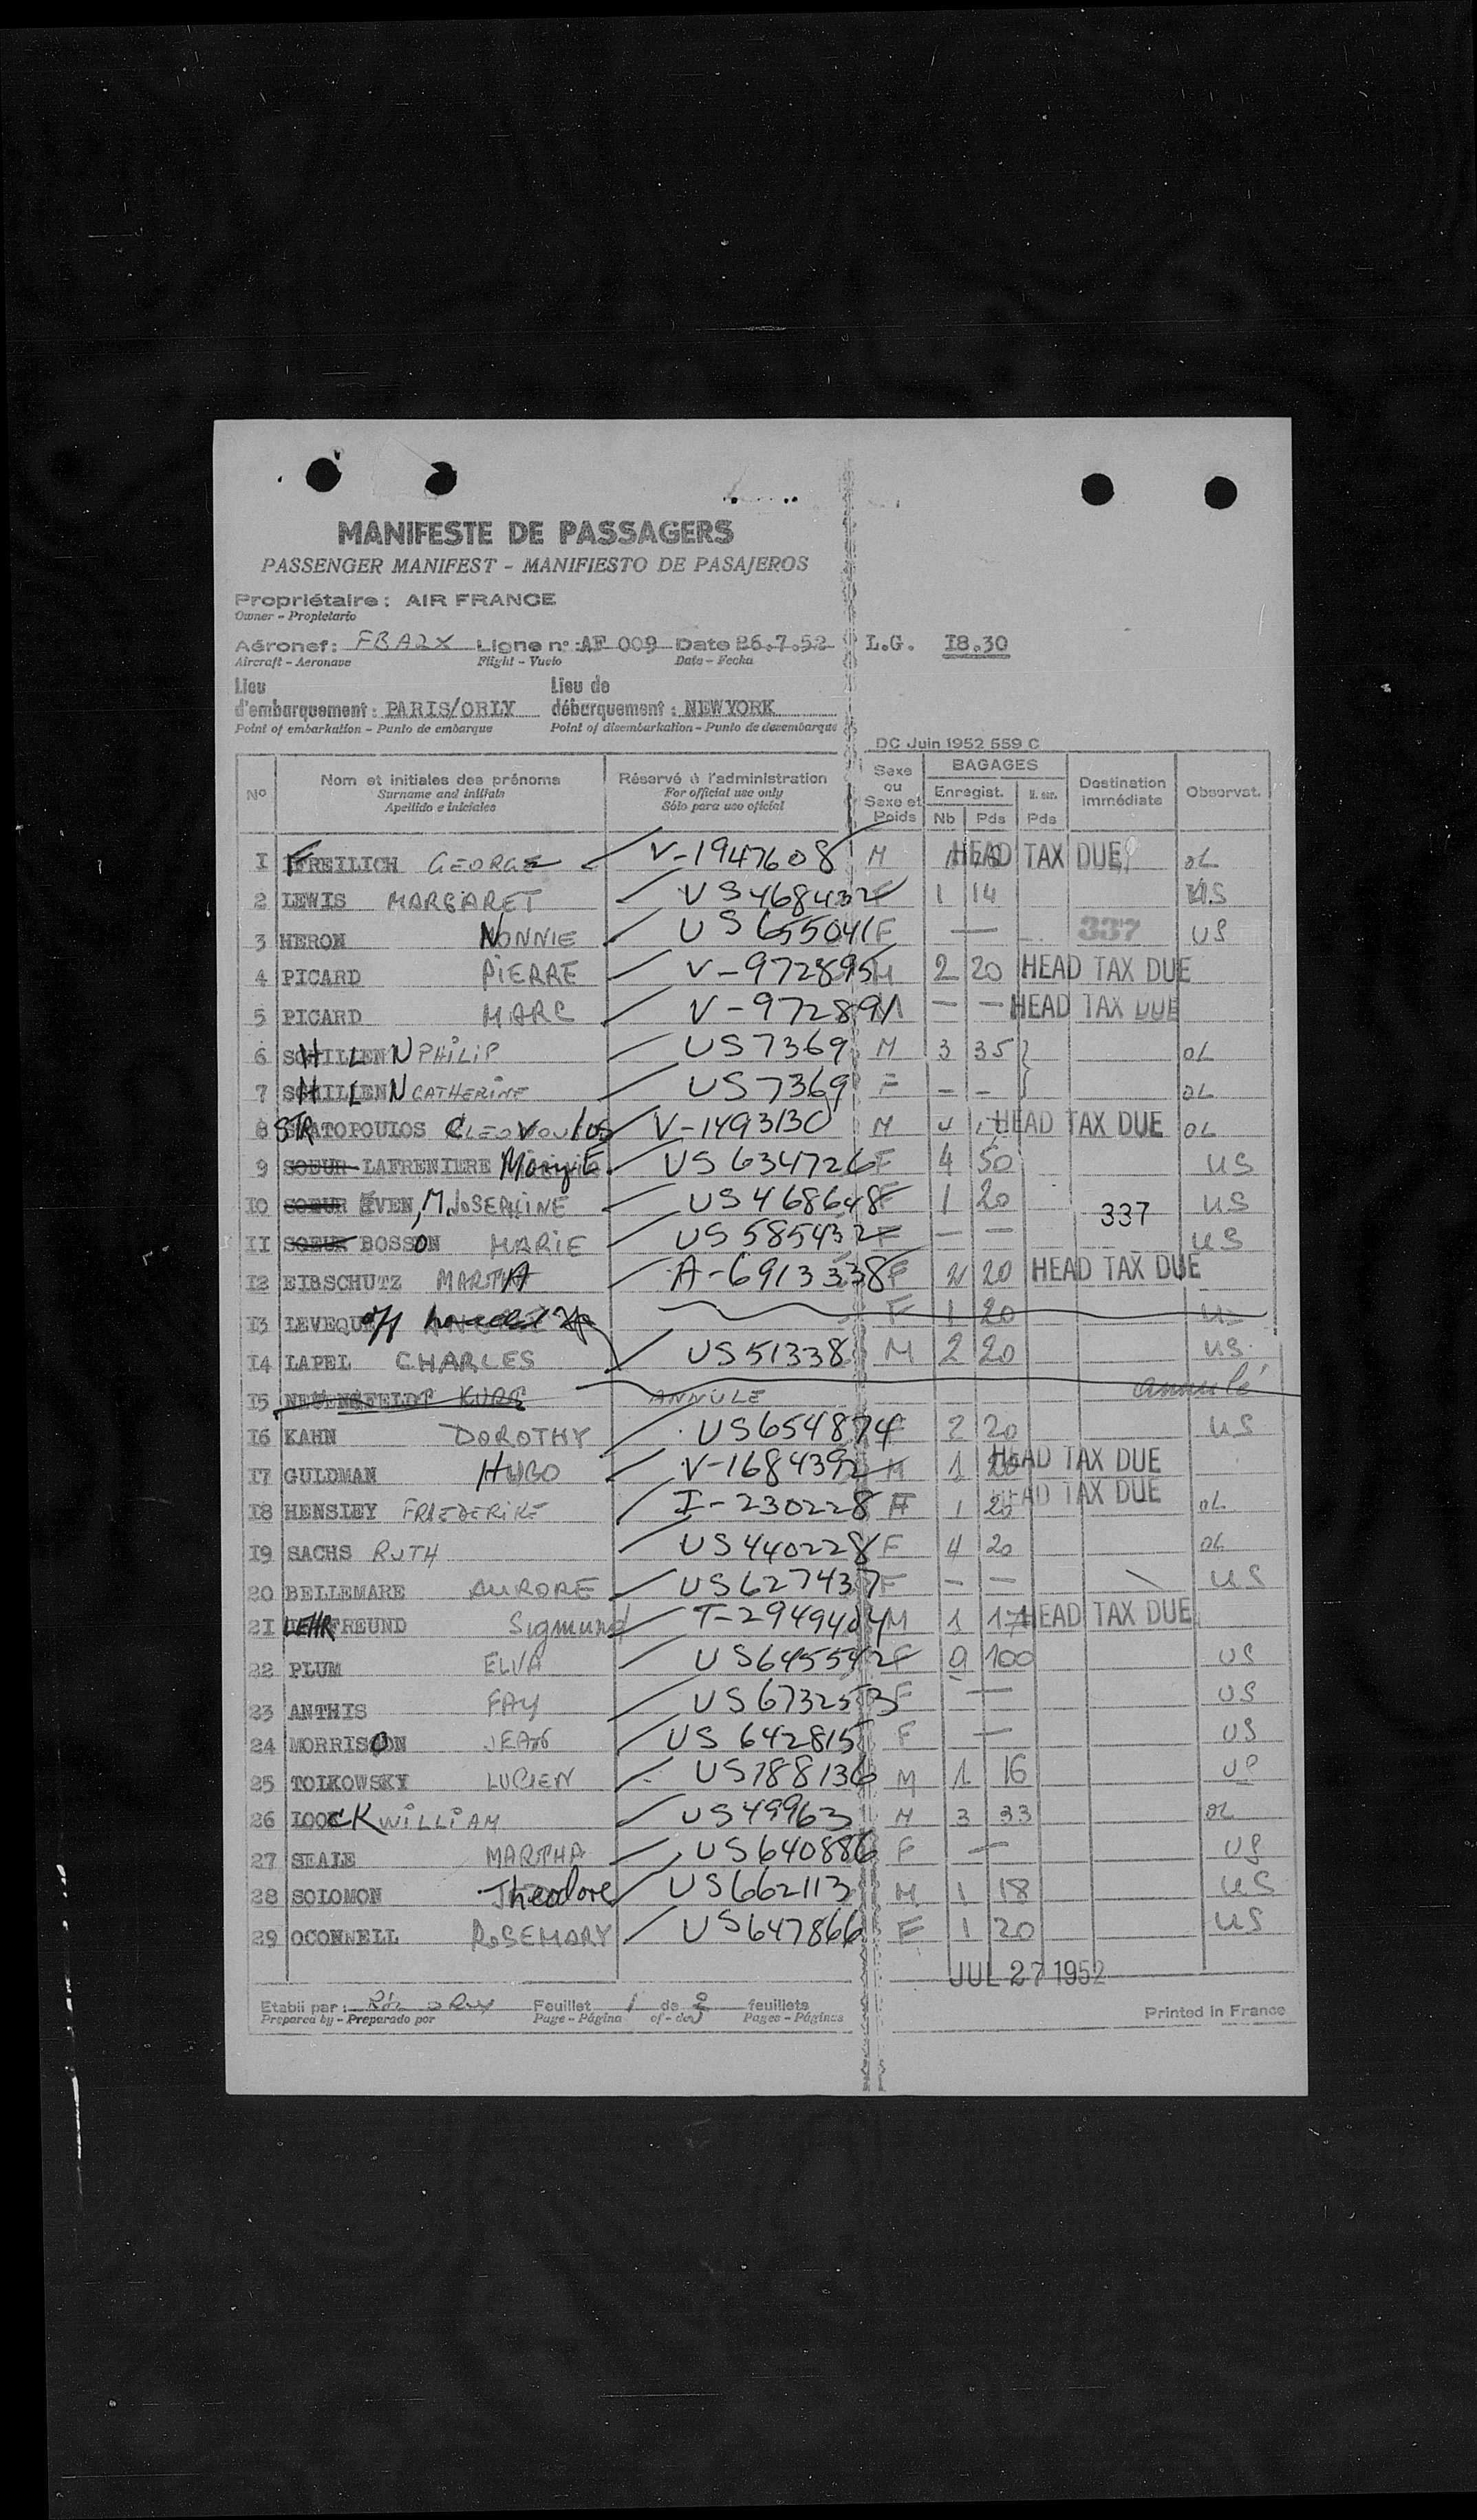 MANIFESTE DE PASSAGERS
PASSENGER MANIFEST - MANIFIESTO DE PASAJEROS
Propriétaire : AIR FRANCE
Owner - Propietario
Aéronef : FBAZX Ligne n° : AF 009 Date 26.7.52 L.G. I8.30
Aircraft - Aeronave Flight - Vuelo Date - Fecha
Lieu d'embarquement : PARIS/ORLY Lieu de débarquement : NEW YORK
Point of embarkation - Punto de embarque Point of disembarkation - Punto de desembarque
DC Juin 1952 559 C
N° Nom et initiales des prénoms Réservé à l'administration Sexe ou Sexe et Poids BAGAGES Destination immédiate Observat.
Surname and initials For official use only Enregist.
Apellido e iniciales Sólo para uso oficial Nb Pds Pds
I FREILICH GEORGE V-1947608 M HEAD TAX DUE OL
2 LEWIS MARGARET US468432 F 1 14 US
3 HERON NONNIE US655041 F — 337 US
4 PICARD PIERRE V-972895 M 2 20 HEAD TAX DUE
5 PICARD MARC V-972891 M — — HEAD TAX DUE
6 SHILLEN PHILIP US7369 M 3 35 OL
7 SHILLEN CATHERINE US7369 F — — OL
8 STRATOPOULOS CLEOVOULOS V-1493130 M 4 HEAD TAX DUE OL
9 SOEUR LAFRENIERE Mary E US634726 F 4 50 US
IO SOEUR EVEN, M. JOSEPHINE US468648 F 1 20 US
337
II SOEUR BOSSON MARIE US585432 F — — US
I2 EIBSCHUTZ MARTHA A-6913338 F 2 20 HEAD TAX DUE
I3 LEVEQUE off F 1 20 US
I4 LAPEL CHARLES US51338 M 2 20 US
I5 KURT ANNULE annulé
I6 KAHN DOROTHY US654874 F 2 20 US
I7 GULDMAN HUGO V-1684392 M 1 20 HEAD TAX DUE
I8 HENSLEY FRIEDERIKE I-230228 F 1 20 HEAD TAX DUE OL
I9 SACHS RUTH US440228 F 4 20 OL
20 BELLEMARE AURORE US627437 F — — US
2I LEHRFREUND Sigmund T-2949404 M 1 17 HEAD TAX DUE
22 PLUM ELVA US645542 F 9 100 US
23 ANTHIS FAY US673253 F — US
24 MORRISON JEAN US 642815 F — US
25 TOLKOWSKY LUCIEN US188136 M 1 16 US
26 LOOCK WILLIAM US49963 M 3 33 OL
27 SEALE MARTHA US640886 F — US
28 SOLOMON Theodore US662113 M 1 18 US
29 OCONNELL ROSEMARY US647866 F 1 20 US
JUL 27 1952
Etabli par : Feuillet 1 de feuillets
Prepared by - Preparado por Page - Página of - de Pages - Páginas
Printed in France